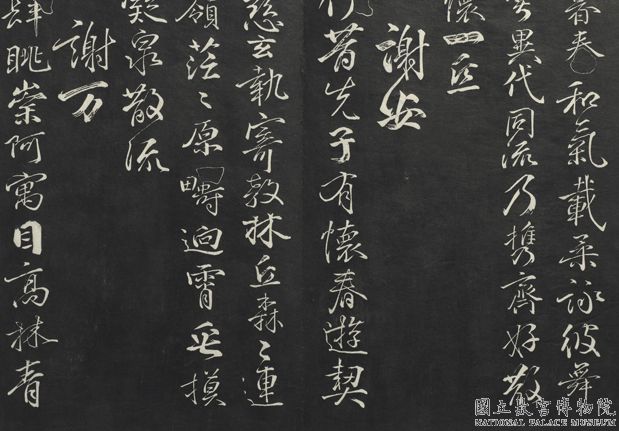 暮春和氣載柔詠彼舞
雩異代同流乃携齊好散
懷一丘
謝安
伊昔先子有懷春遊契
茲言執寄敖林丘森〻連
嶺茫〻原疇迥霄垂
凝泉散流
謝万
肆眺崇阿寓目高林青
國立故宮博物院
NATIONAL PALACE MUSEUM